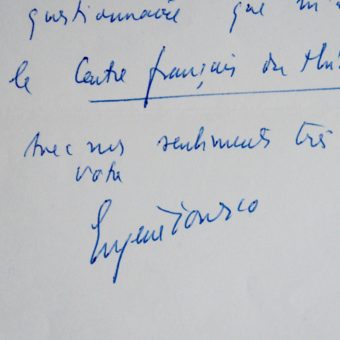 questionnaire que m'a
le Centre français du Thé
Avec mes sentiments très
votre
Eugène Ionesco